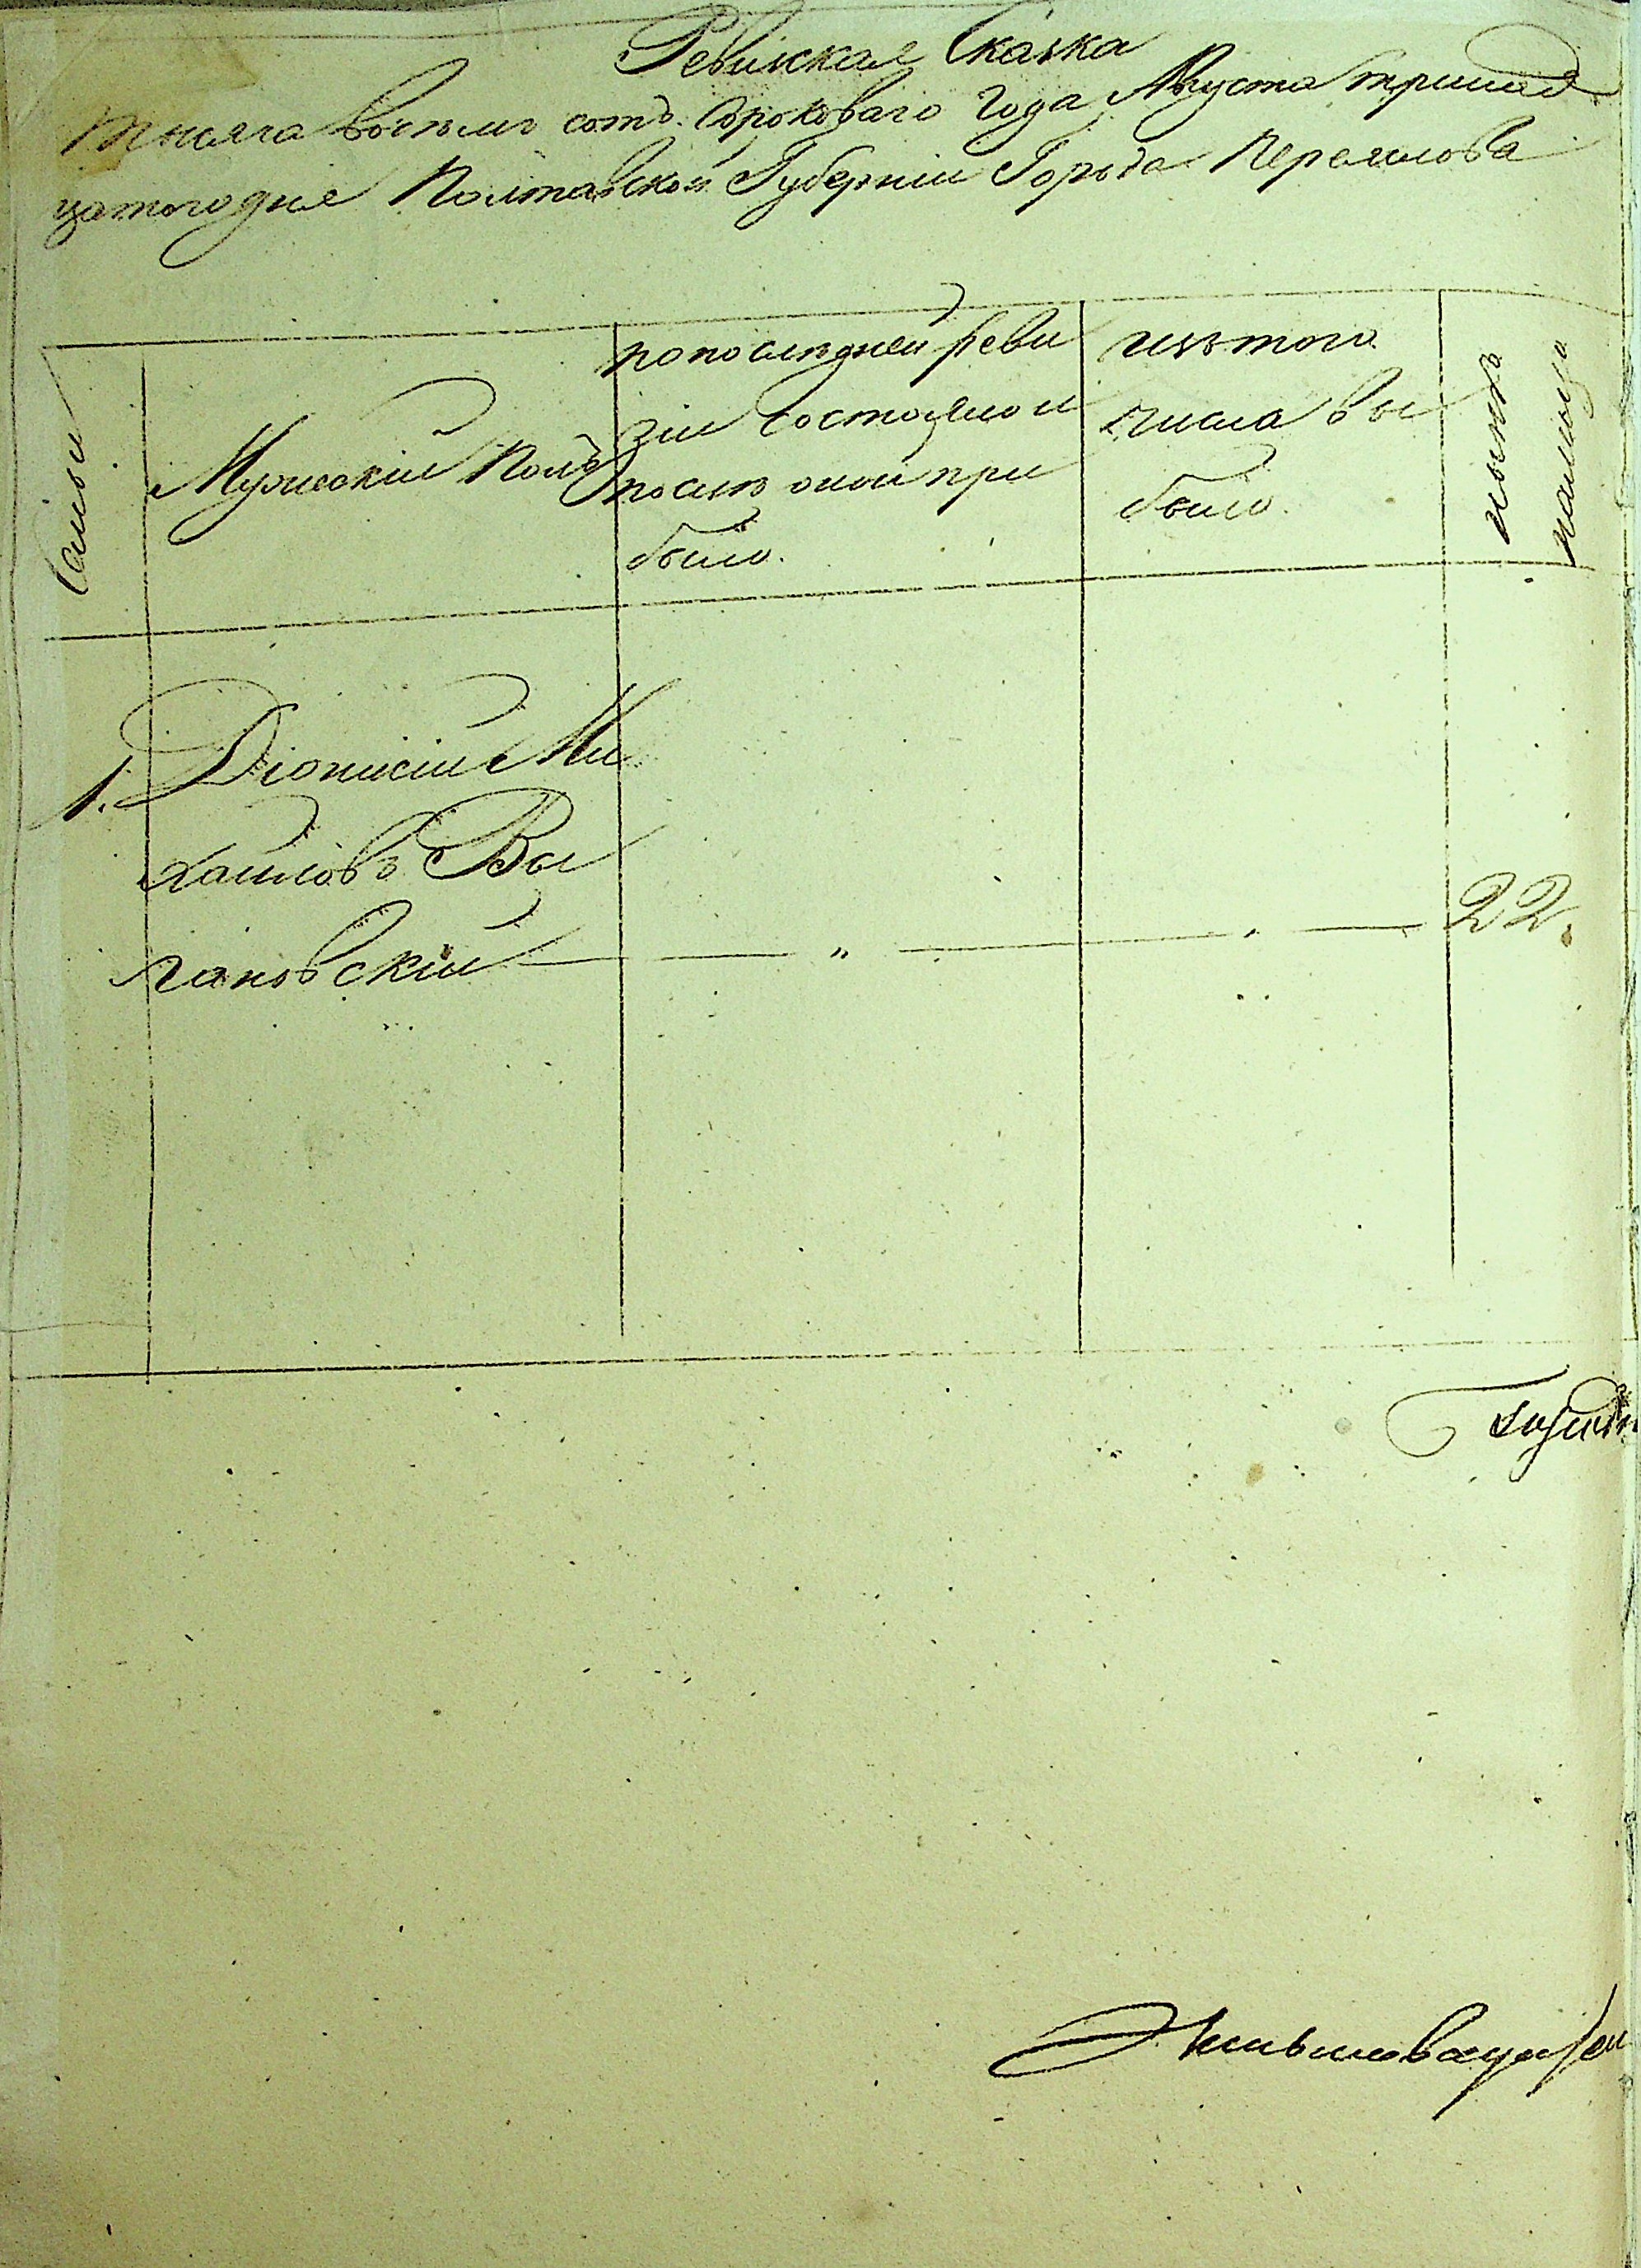 Ревизская Сказка
тысяча восемь сотъ сороковаго Года Августа тринад
цатогодня Полтавской Губерніи Города Переяслова
Семьи
Мужеский Полъ
попослѣдней реви
зіи состояло и
послѣ оной при
было.
изътого
числа вы
было.
нынѣ
налицо
1. Діонисій Ми
хайловъ Вы
гановскій — „ — „ — 22.